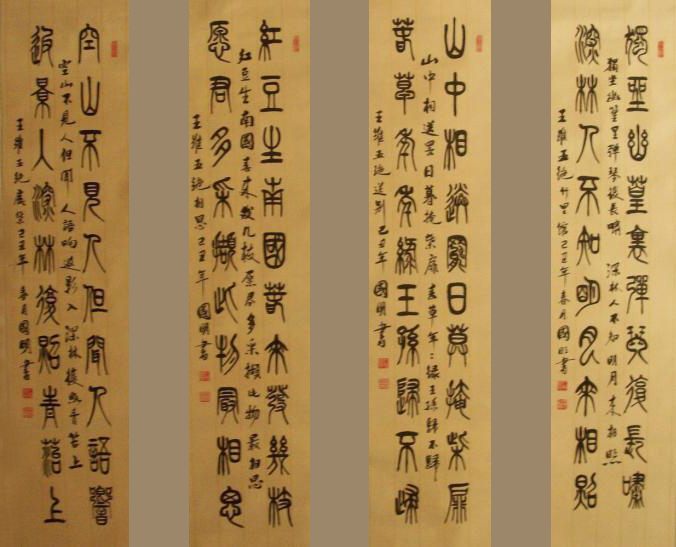 獨坐幽篁裏彈琴復長嘯
獨坐幽篁里彈琴復長嘯 深林人不知明月來相照
深林人不知明月來相照
王維五絕竹里館己丑年春月國明書
山中相送罷日莫掩柴扉
山中相送罢日暮掩柴扉春草年:緑王孫歸不歸
春草年年綠王孫歸不歸
王維五絕送別 己丑年 國明書
紅豆生南國春來發幾枝
紅豆生南國春来發几枝 愿君多采擷此物最相思
愿君多采擷此物最相思
王維五絕相思己丑年 國明書
空山不見人但聞人語響
空山不見人但聞人語响返影入深林復照青苔上
返景入深林復照青苔上
王維五絕鹿柴己丑年春月國明書